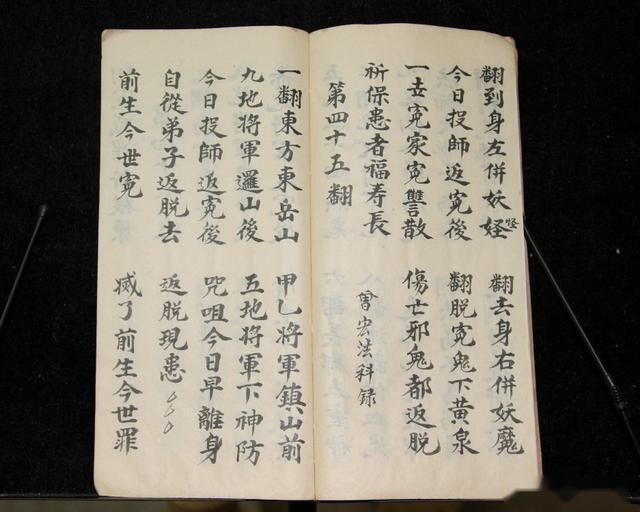 翻到身左併妖怪　翻去身右併妖魔
今日投師返寃後　翻脱寃鬼下黄泉
一去寃家寃讐散　傷亡邪鬼都返脱
祈保患者福寿長
第四十五翻　曾宏法科録
一翻東方東岳山　甲乙将軍鎮山前
九地将軍邏山後　五地将軍下神防
今日投師返寃後　咒咀今日早離身
自從弟子返脱去　返脱現患
前生今世寃　滅了前生今世罪